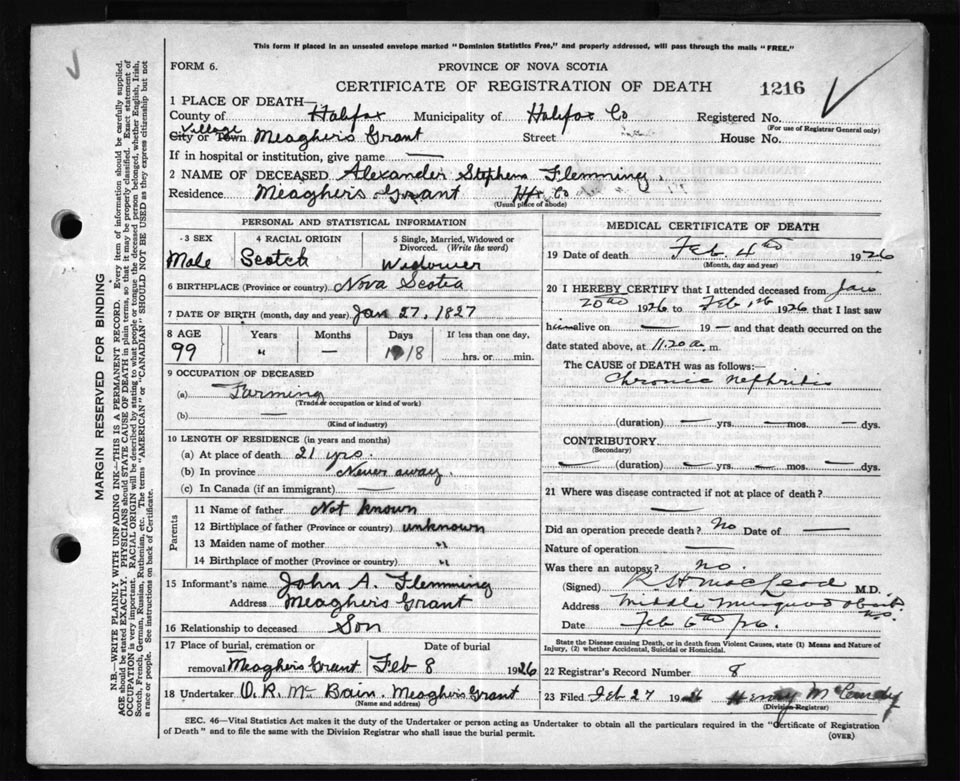 This form if placed in an unsealed envelope marked "Dominion Statistics Free," and properly addressed, will pass through the mails "FREE."
FORM 6.
PROVINCE OF NOVA SCOTIA
CERTIFICATE OF REGISTRATION OF DEATH
1216
1 PLACE OF DEATH—
County of Halifax Municipality of Halifax Co Registered No.
(For use of Registrar General only)
Village
City or Town Meaghers Grant Street House No.
If in hospital or institution, give name —
2 NAME OF DECEASED Alexander Stephens Flemming.
Residence Meaghers Grant Hfx Co
(Usual place of abode)
PERSONAL AND STATISTICAL INFORMATION
3 SEX 4 RACIAL ORIGIN 5 Single, Married, Widowed or Divorced. (Write the word)
Male Scotch Widower
6 BIRTHPLACE (Province or country) Nova Scotia
7 DATE OF BIRTH (month, day and year) Jan 27, 1827
8 AGE Years Months Days If less than one day,
99 " — 18 hrs. or min.
9 OCCUPATION OF DECEASED
(a) Farming
(Trade or occupation or kind of work)
(b) —
(Kind of industry)
10 LENGTH OF RESIDENCE (in years and months)
(a) At place of death 21 yrs.
(b) In province Never away.
(c) In Canada (if an immigrant) —
Parents
11 Name of father Not known
12 Birthplace of father (Province or country) unknown
13 Maiden name of mother "
14 Birthplace of mother "
15 Informant's name John A. Flemming
Address Meaghers Grant
16 Relationship to deceased Son
17 Place of burial, cremation or Date of burial
removal Meaghers Grant Feb 8 1926
18 Undertaker O. R. McBain. Meaghers Grant
(Name and address)
MEDICAL CERTIFICATE OF DEATH
19 Date of death Feb. 4th 1926
(Month, day and year)
20 I HEREBY CERTIFY that I attended deceased from Jan
20th 1926 to Feb 1st 1926 that I last saw
him alive on — 19 — and that death occurred on the
date stated above, at 11.20 a. m.
The CAUSE of DEATH was as follows:—
Chronic nephritis
(duration) — yrs. — mos. — dys.
CONTRIBUTORY
(Secondary)
— (duration) — yrs. — mos. — dys.
21 Where was disease contracted if not at place of death?
—
Did an operation precede death? No Date of —
Nature of operation —
Was there an autopsy? no.
(Signed) R. H. MacLeod M.D.
Address Middle Musquodoboit N.S.
Date Feb 6th /26.
State the Disease causing Death, or in death from Violent Causes, state (1) Means and Nature of Injury, (2) whether Accidental, Suicidal or Homicidal.
22 Registrar's Record Number 8
23 Filed Feb 27 1926 Henry McCurdy
(Division Registrar)
SEC. 46—Vital Statistics Act makes it the duty of the Undertaker or person acting as Undertaker to obtain all the particulars required in the "Certificate of Registration
of Death" and to file the same with the Division Registrar who shall issue the burial permit.
(OVER)
MARGIN RESERVED FOR BINDING
N.B.—WRITE PLAINLY WITH UNFADING INK—THIS IS A PERMANENT RECORD. Every item of information should be carefully supplied.
AGE should be stated EXACTLY. PHYSICIANS should STATE CAUSE OF DEATH in plain terms, so that it may be properly classified. Exact statement of
OCCUPATION is very important. RACIAL ORIGIN will be described by stating to what people or tongue the deceased person belonged, whether English, Irish,
Scotch, French, German, Russian, Ruthenian, etc. The terms "AMERICAN" or "CANADIAN" SHOULD NOT BE USED as they express citizenship but not
a race or people. See instructions on back of Certificate.